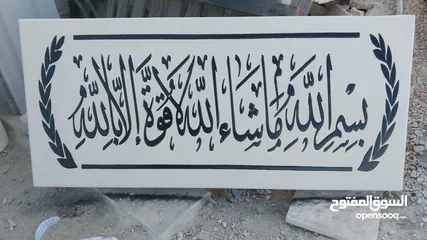 بِسْمِ اللَّهِ مَا شَاءَ اللَّهُ لَا قُوَّةَ إِلَّا بِاللَّهِ
السوق المفتوح
opensooq.com